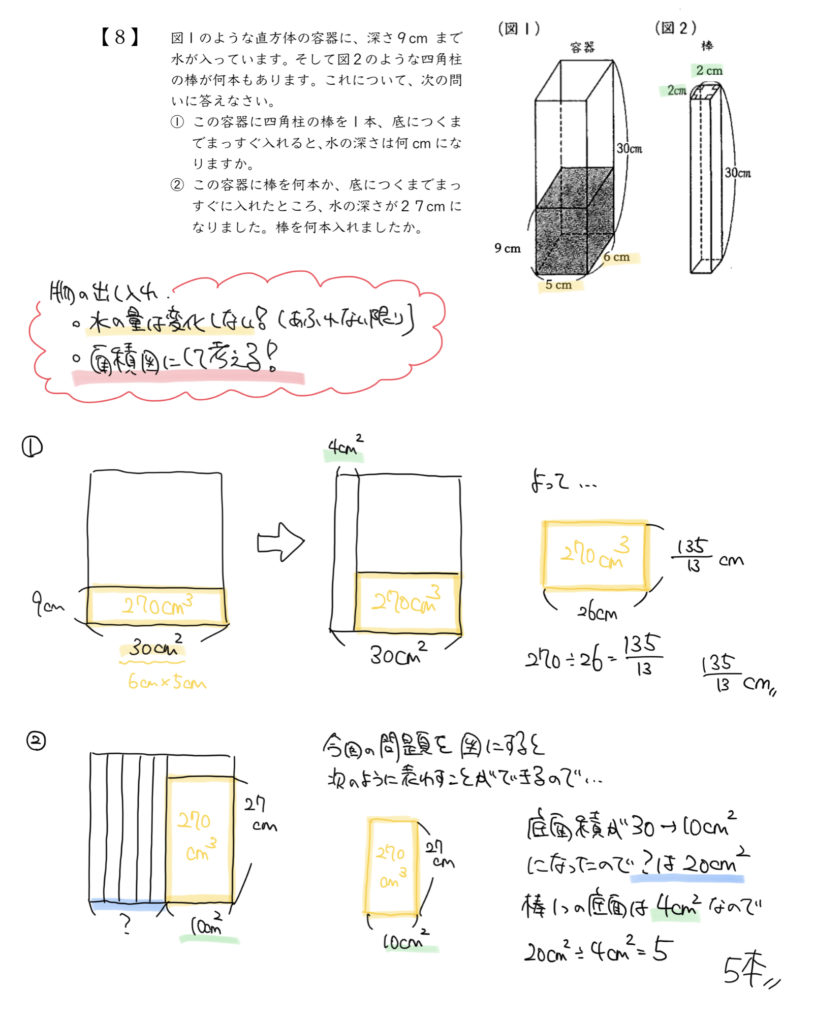 【8】
図1のような直方体の容器に、深さ9cmまで
水が入っています。そして図2のような四角柱
の棒が何本もあります。これについて、次の問
いに答えなさい。
① この容器に四角柱の棒を1本、底につくま
でまっすぐ入れると、水の深さは何cmにな
りますか。
② この容器に棒を何本か、底につくまでまっ
すぐに入れたところ、水の深さが27cmに
なりました。棒を何本入れましたか。
(図1)
容器
30cm
9 cm
5 cm
6 cm
(図2)
棒
2 cm
2cm
30cm
の出し入れ
○水の量は変化しない!(あふれない限り)
○面積図にして考える!
①
9cm
270cm³
30cm²
6cm×5cm
4cm²
270cm³
30cm²
よって…
270cm³
135/13 cm
26cm
270÷26=135/13
135/13 cm〃
②
270
cm³
27
cm
?
10cm²
今回の問題を図にすると
次のように表わすことができるので…
270
cm³
27
cm
10cm²
底面積が30→10cm²
になったので?は20cm²
棒1つの底面は4cm²なので
20cm²÷4cm²=5
5本〃